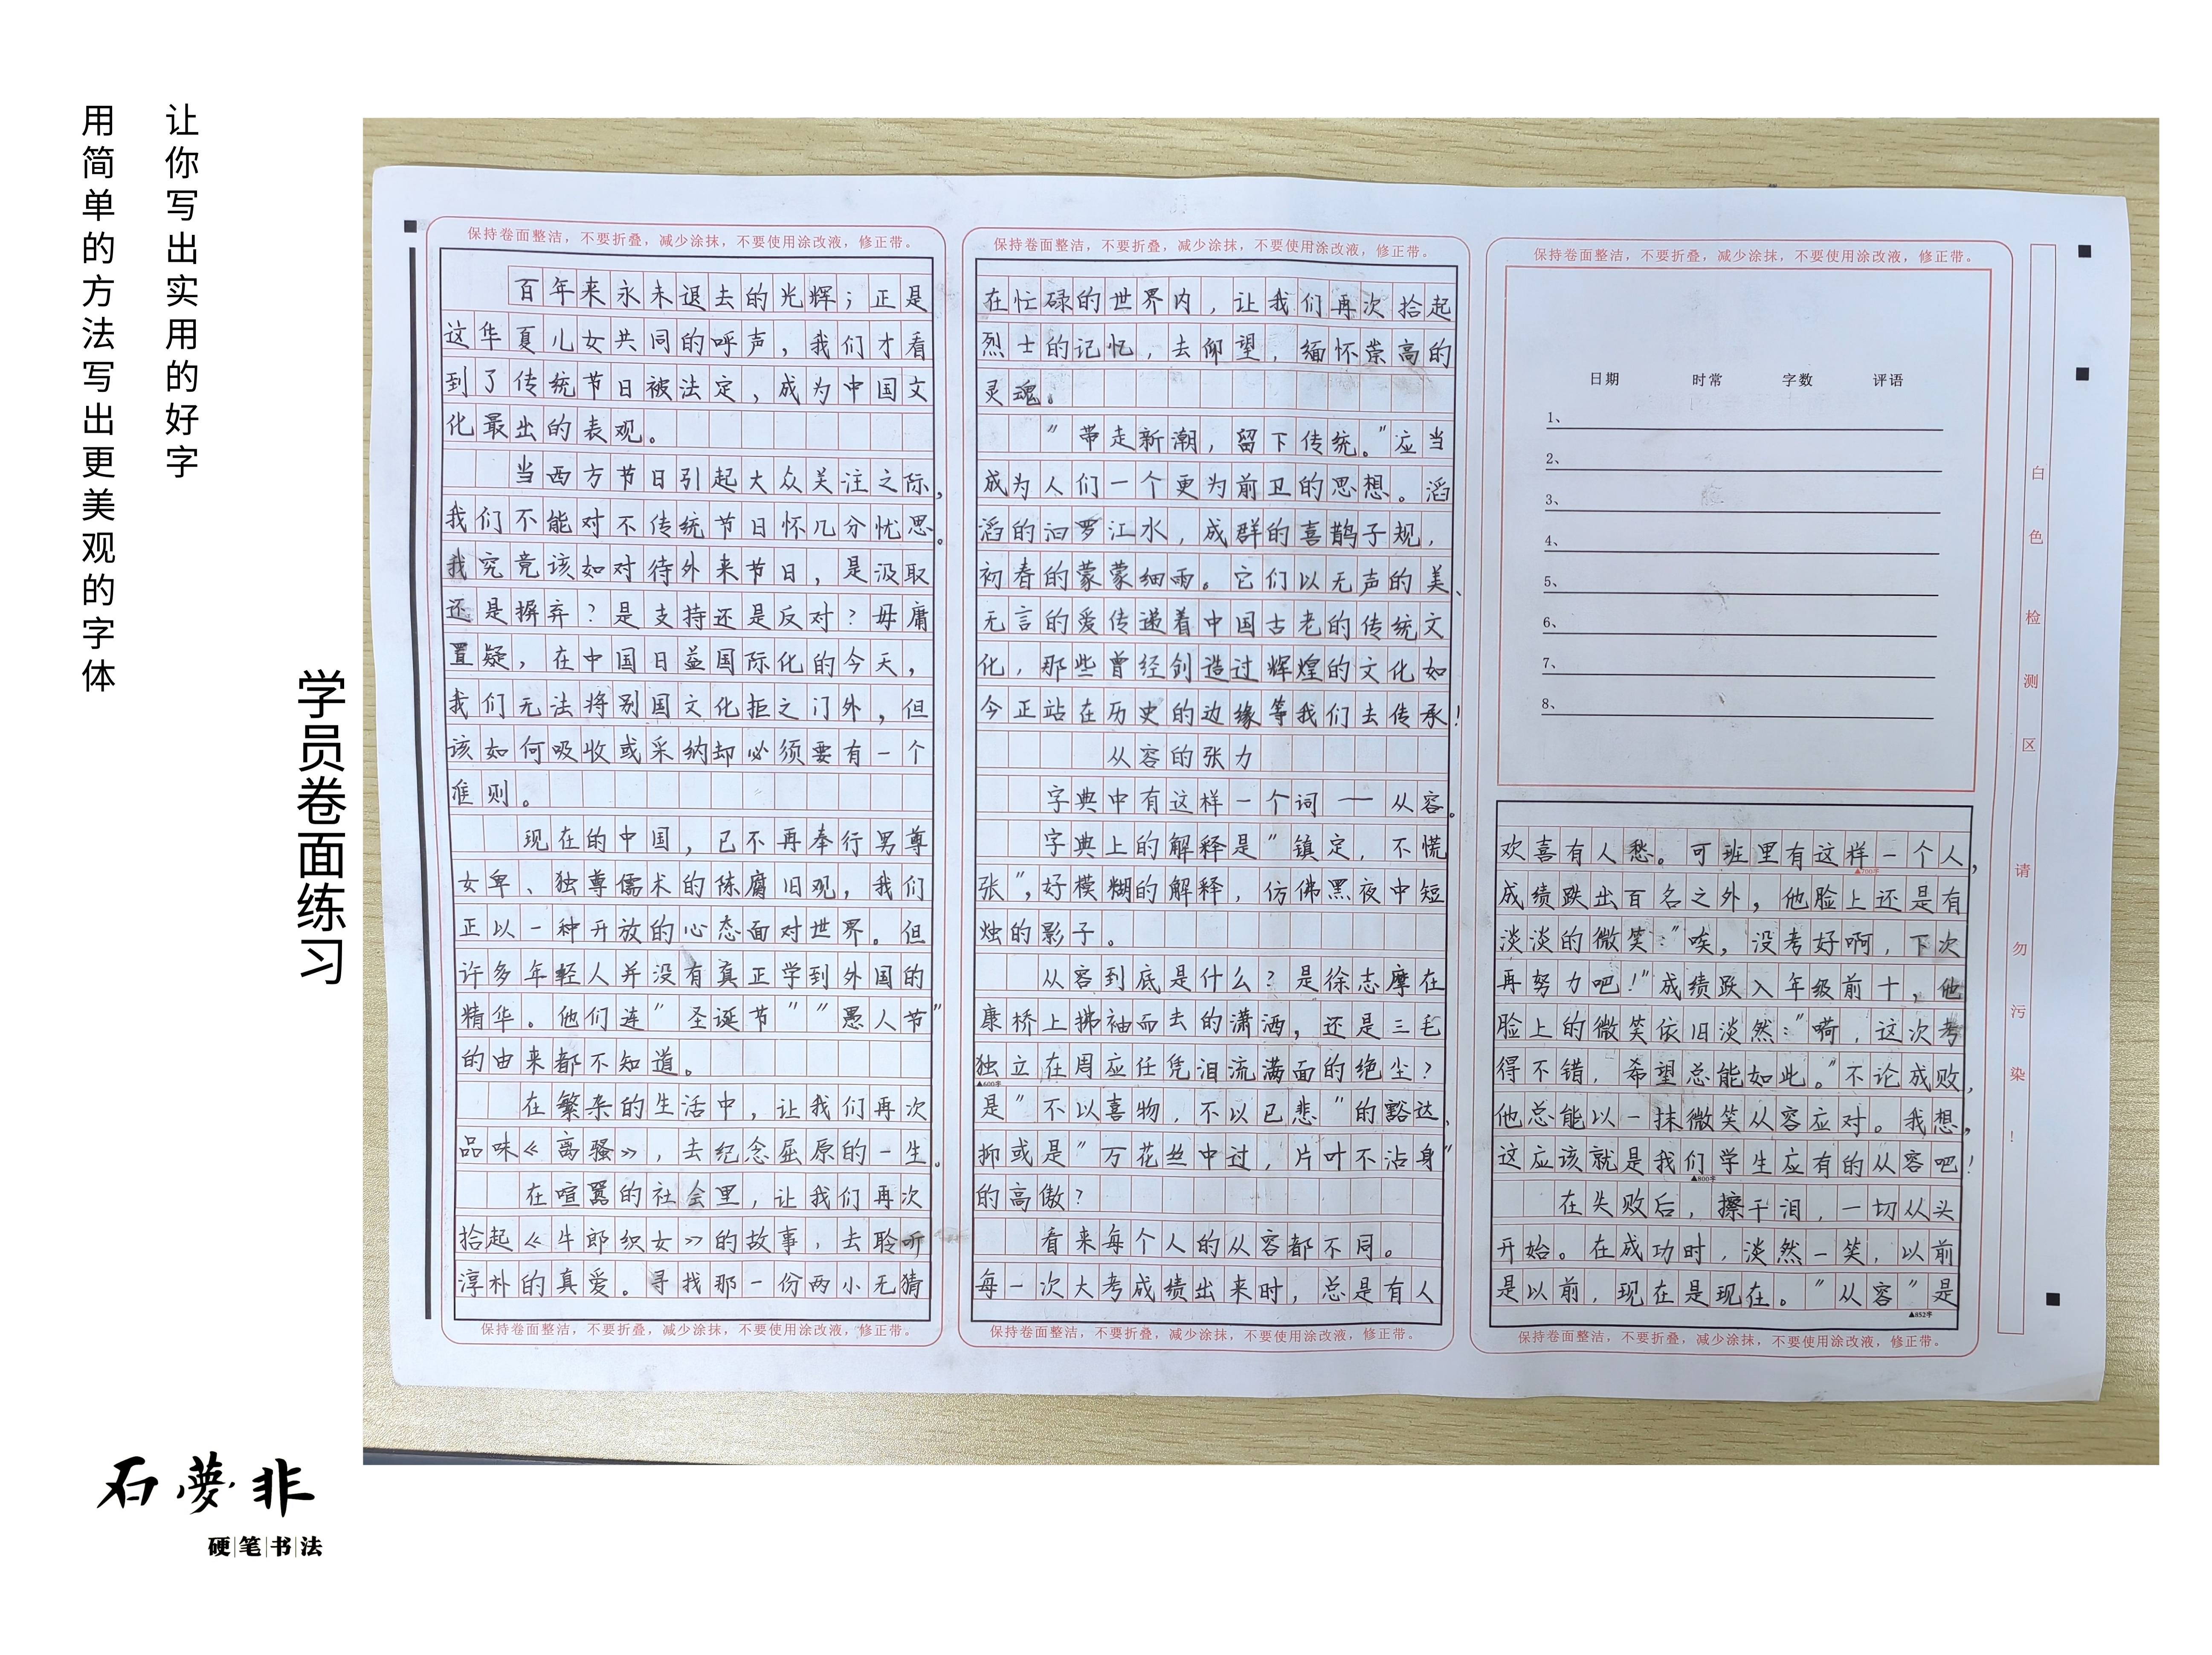 让你写出实用的好字
用简单的方法写出更美观的字体
学员卷面练习
石夢非
硬笔书法
保持卷面整洁，不要折叠，减少涂抹，不要使用涂改液，修正带。
百年来永未退去的光辉；正是
这华夏儿女共同的呼声，我们才看
到了传统节日被法定，成为中国文
化最出的表观。
当西方节日引起大众关注之际，
我们不能对不传统节日怀几分忧思。
我究竟该如对待外来节日，是汲取
还是摒弃？是支持还是反对？毋庸
置疑，在中国日益国际化的今天，
我们无法将别国文化拒之门外，但
该如何吸收或采纳却必须要有一个
准则。
现在的中国，已不再奉行男尊
女卑、独尊儒术的陈腐旧观，我们
正以一种开放的心态面对世界。但
许多年轻人并没有真正学到外国的
精华。他们连“圣诞节”“愚人节”
的由来都不知道。
在繁杂的生活中，让我们再次
品味《离骚》，去纪念屈原的一生。
在喧嚣的社会里，让我们再次
拾起《牛郎织女》的故事，去聆听
淳朴的真爱。寻找那一份两小无猜
保持卷面整洁，不要折叠，减少涂抹，不要使用涂改液，修正带。
保持卷面整洁，不要折叠，减少涂抹，不要使用涂改液，修正带。
在忙碌的世界内，让我们再次拾起
烈士的记忆，去仰望，缅怀崇高的
灵魂。
“带走新潮，留下传统。”应当
成为人们一个更为前卫的思想。滔
滔的汩罗江水，成群的喜鹊子规，
初春的蒙蒙细雨。它们以无声的美、
无言的爱传递着中国古老的传统文
化，那些曾经创造过辉煌的文化如
今正站在历史的边缘等我们去传承！
从容的张力
字典中有这样一个词——从容。
字典上的解释是“镇定，不慌
张”，好模糊的解释，仿佛黑夜中短
烛的影子。
从容到底是什么？是徐志摩在
康桥上拂袖而去的潇洒，还是三毛
独立在周应任凭泪流满面的绝尘？
▲600字
是“不以喜物，不以已悲”的豁达，
抑或是“万花丝中过，片叶不沾身”
的高傲？
看来每个人的从容都不同。
每一次大考成绩出来时，总是有人
保持卷面整洁，不要折叠，减少涂抹，不要使用涂改液，修正带。
保持卷面整洁，不要折叠，减少涂抹，不要使用涂改液，修正带。
日期 时常 字数 评语
1、
2、
3、
4、
5、
6、
7、
8、
欢喜有人愁。可班里有这样一个人，
▲700字
成绩跌出百名之外，他脸上还是有
淡淡的微笑：“唉，没考好啊，下次
再努力吧！”成绩跃入年级前十，他
脸上的微笑依旧淡然：“嗬，这次考
得不错，希望总能如此。”不论成败，
他总能以一抹微笑从容应对。我想，
这应该就是我们学生应有的从容吧！
▲800字
在失败后，擦干泪，一切从头
开始。在成功时，淡然一笑，以前
是以前，现在是现在。“从容”是
▲852字
保持卷面整洁，不要折叠，减少涂抹，不要使用涂改液，修正带。
白色检测区 请勿污染！